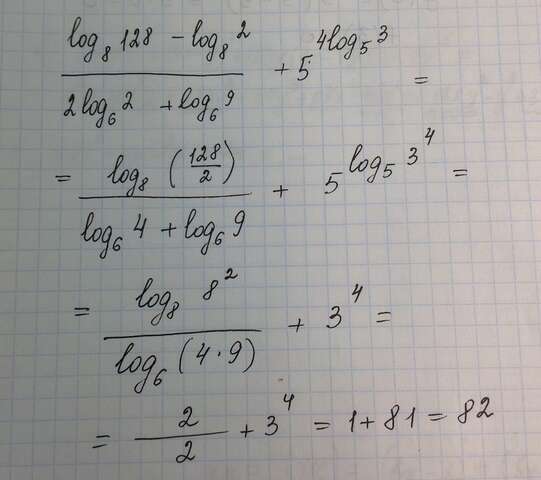 (log₈ 128 − log₈ 2) / (2 log₆ 2 + log₆ 9) + 5^(4 log₅ 3) =
= log₈ (128/2) / (log₆ 4 + log₆ 9) + 5^(log₅ 3⁴) =
= log₈ 8² / log₆ (4 · 9) + 3⁴ =
= 2/2 + 3⁴ = 1 + 81 = 82